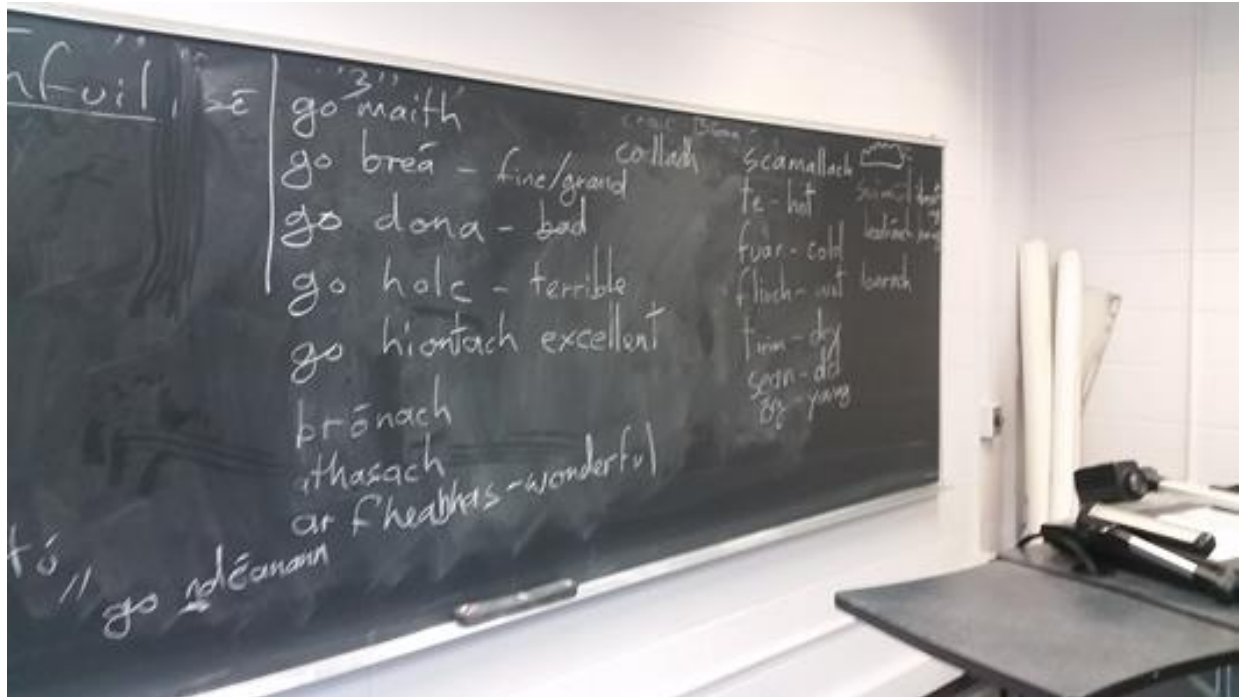 nfuil, sé
"3"
go maith
go breá - fine/grand
go dona - bad
go holc - terrible
go hiontach excellent
brónach
áthasach
ar fheabhas - wonderful
go ndéanann
codladh
scamallach
te - hot
fuar - cold
fliuch - wet
tirim - dry
sean - old
óg - young